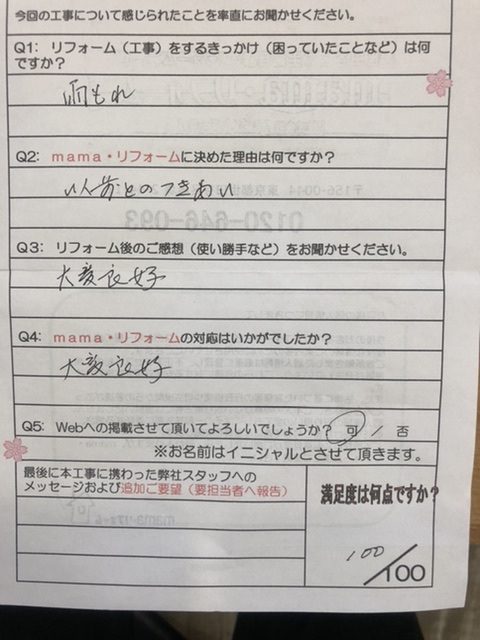 今回の工事について感じられたことを率直にお聞かせください。
Q1: リフォーム（工事）をするきっかけ（困っていたことなど）は何
ですか？
雨もれ
Q2: mama・リフォームに決めた理由は何ですか？
以前とのつきあい
Q3: リフォーム後のご感想（使い勝手など）をお聞かせください。
大変良好
Q4: mama・リフォームの対応はいかがでしたか？
大変良好
Q5: Webへの掲載させて頂いてよろしいでしょうか？ 可 / 否
※お名前はイニシャルとさせて頂きます。
最後に本工事に携わった弊社スタッフへの
メッセージおよび追加ご要望（要担当者へ報告）
満足度は何点ですか？
100
/100